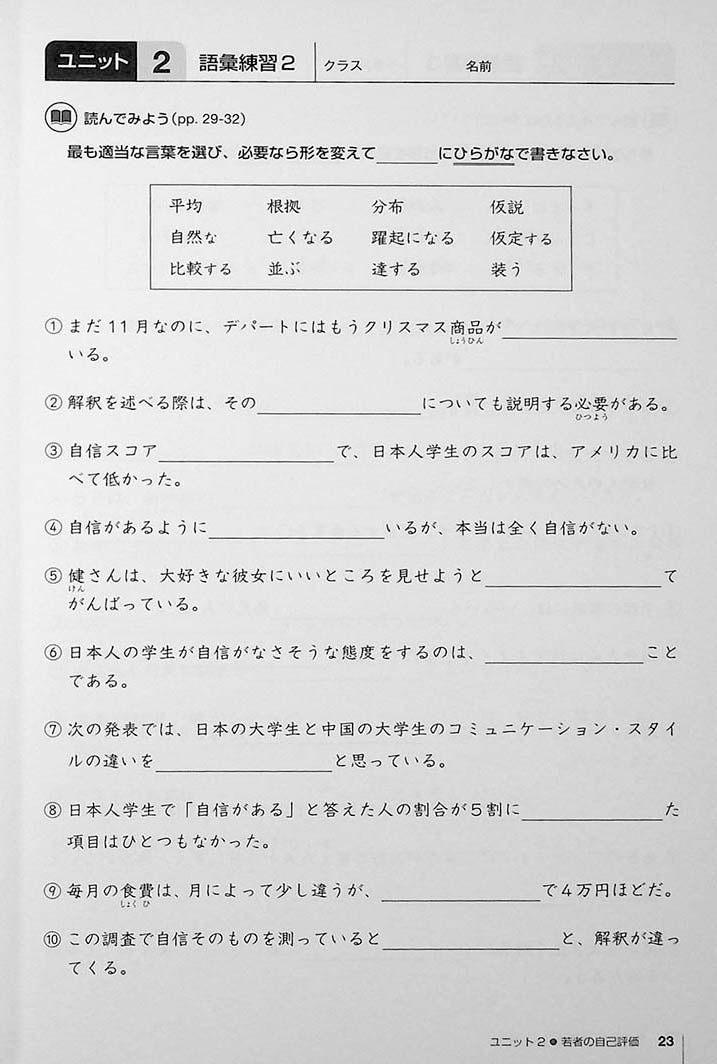 ユニット 2 語彙練習2 クラス 名前
読んでみよう(pp. 29-32)
最も適当な言葉を選び、必要なら形を変えて______にひらがなで書きなさい。
平均 根拠 分布 仮説
自然な 亡くなる 躍起になる 仮定する
比較する 並ぶ 達する 装う
① まだ11月なのに、デパートにはもうクリスマス商品が______
しょうひん
いる。
② 解釈を述べる際は、その______についても説明する必要がある。
ひつよう
③ 自信スコア______で、日本人学生のスコアは、アメリカに比
べて低かった。
④ 自信があるように______いるが、本当は全く自信がない。
⑤ 健さんは、大好きな彼女にいいところを見せようと______て
けん
がんばっている。
⑥ 日本人の学生が自信がなさそうな態度をするのは、______こと
である。
⑦ 次の発表では、日本の大学生と中国の大学生のコミュニケーション・スタイ
ルの違いを______と思っている。
⑧ 日本人学生で「自信がある」と答えた人の割合が5割に______た
項目はひとつもなかった。
⑨ 毎月の食費は、月によって少し違うが、______で4万円ほどだ。
しょくひ
⑩ この調査で自信そのものを測っていると______と、解釈が違っ
てくる。
ユニット2●若者の自己評価 23